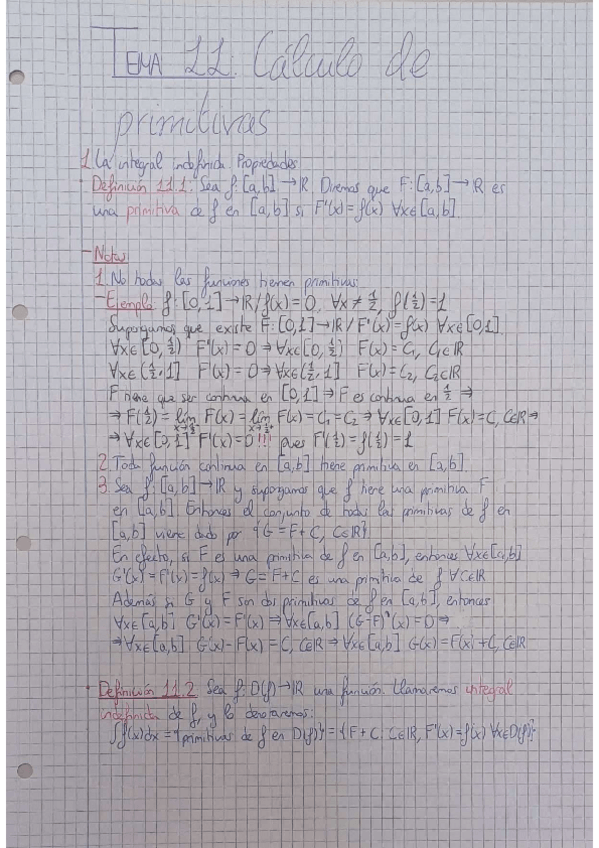 TEMA 11. Cálculo de
primitivas
1. La integral indefinida. Propiedades
· Definición 11.1. Sea f: [a,b] → ℝ. Diremos que F: [a,b] → ℝ es
una primitiva de f en [a,b] si F'(x) = f(x) ∀x∈[a,b].
- Notas
1. No todas las funciones tienen primitivas
- Ejemplo f: [0,1] → ℝ / f(x) = 0, ∀x ≠ 1/2, f(1/2) = 1
Supongamos que existe F: [0,1] → ℝ / F'(x) = f(x) ∀x∈[0,1].
∀x∈[0,1/2) F'(x) = 0 ⇒ ∀x∈[0,1/2) F(x) = C₁, C₁∈ℝ
∀x∈(1/2,1] F'(x) = 0 ⇒ ∀x∈(1/2,1] F(x) = C₂, C₂∈ℝ
F tiene que ser continua en [0,1] ⇒ F es continua en 1/2 ⇒
⇒ F(1/2) = lim x→1/2⁻ F(x) = lim x→1/2⁺ F(x) = C₁ = C₂ ⇒ ∀x∈[0,1] F(x) = C, C∈ℝ ⇒
⇒ ∀x∈[0,1] F'(x) = 0 !!! pues F'(1/2) = f(1/2) = 1
2. Toda función continua en [a,b] tiene primitiva en [a,b].
3. Sea f: [a,b] → ℝ y supongamos que f tiene una primitiva F
en [a,b]. Entonces el conjunto de todas las primitivas de f en
[a,b] viene dado por {G = F + C, C∈ℝ}
En efecto, si F es una primitiva de f en [a,b], entonces ∀x∈[a,b]
G'(x) = F'(x) = f(x) ⇒ G = F + C es una primitiva de f ∀C∈ℝ
Además si G y F son dos primitivas de f en [a,b], entonces
∀x∈[a,b] G'(x) = F'(x) ⇒ ∀x∈[a,b] (G-F)'(x) = 0 ⇒
⇒ ∀x∈[a,b] G(x) - F(x) = C, C∈ℝ ⇒ ∀x∈[a,b] G(x) = F(x) + C, C∈ℝ
· Definición 11.2. Sea f: D(f) → ℝ una función. Llamaremos integral
indefinida de f, y lo denotaremos:
∫f(x)dx = {primitivas de f en D(f)} = {F + C: C∈ℝ, F'(x) = f(x) ∀x∈D(f)}